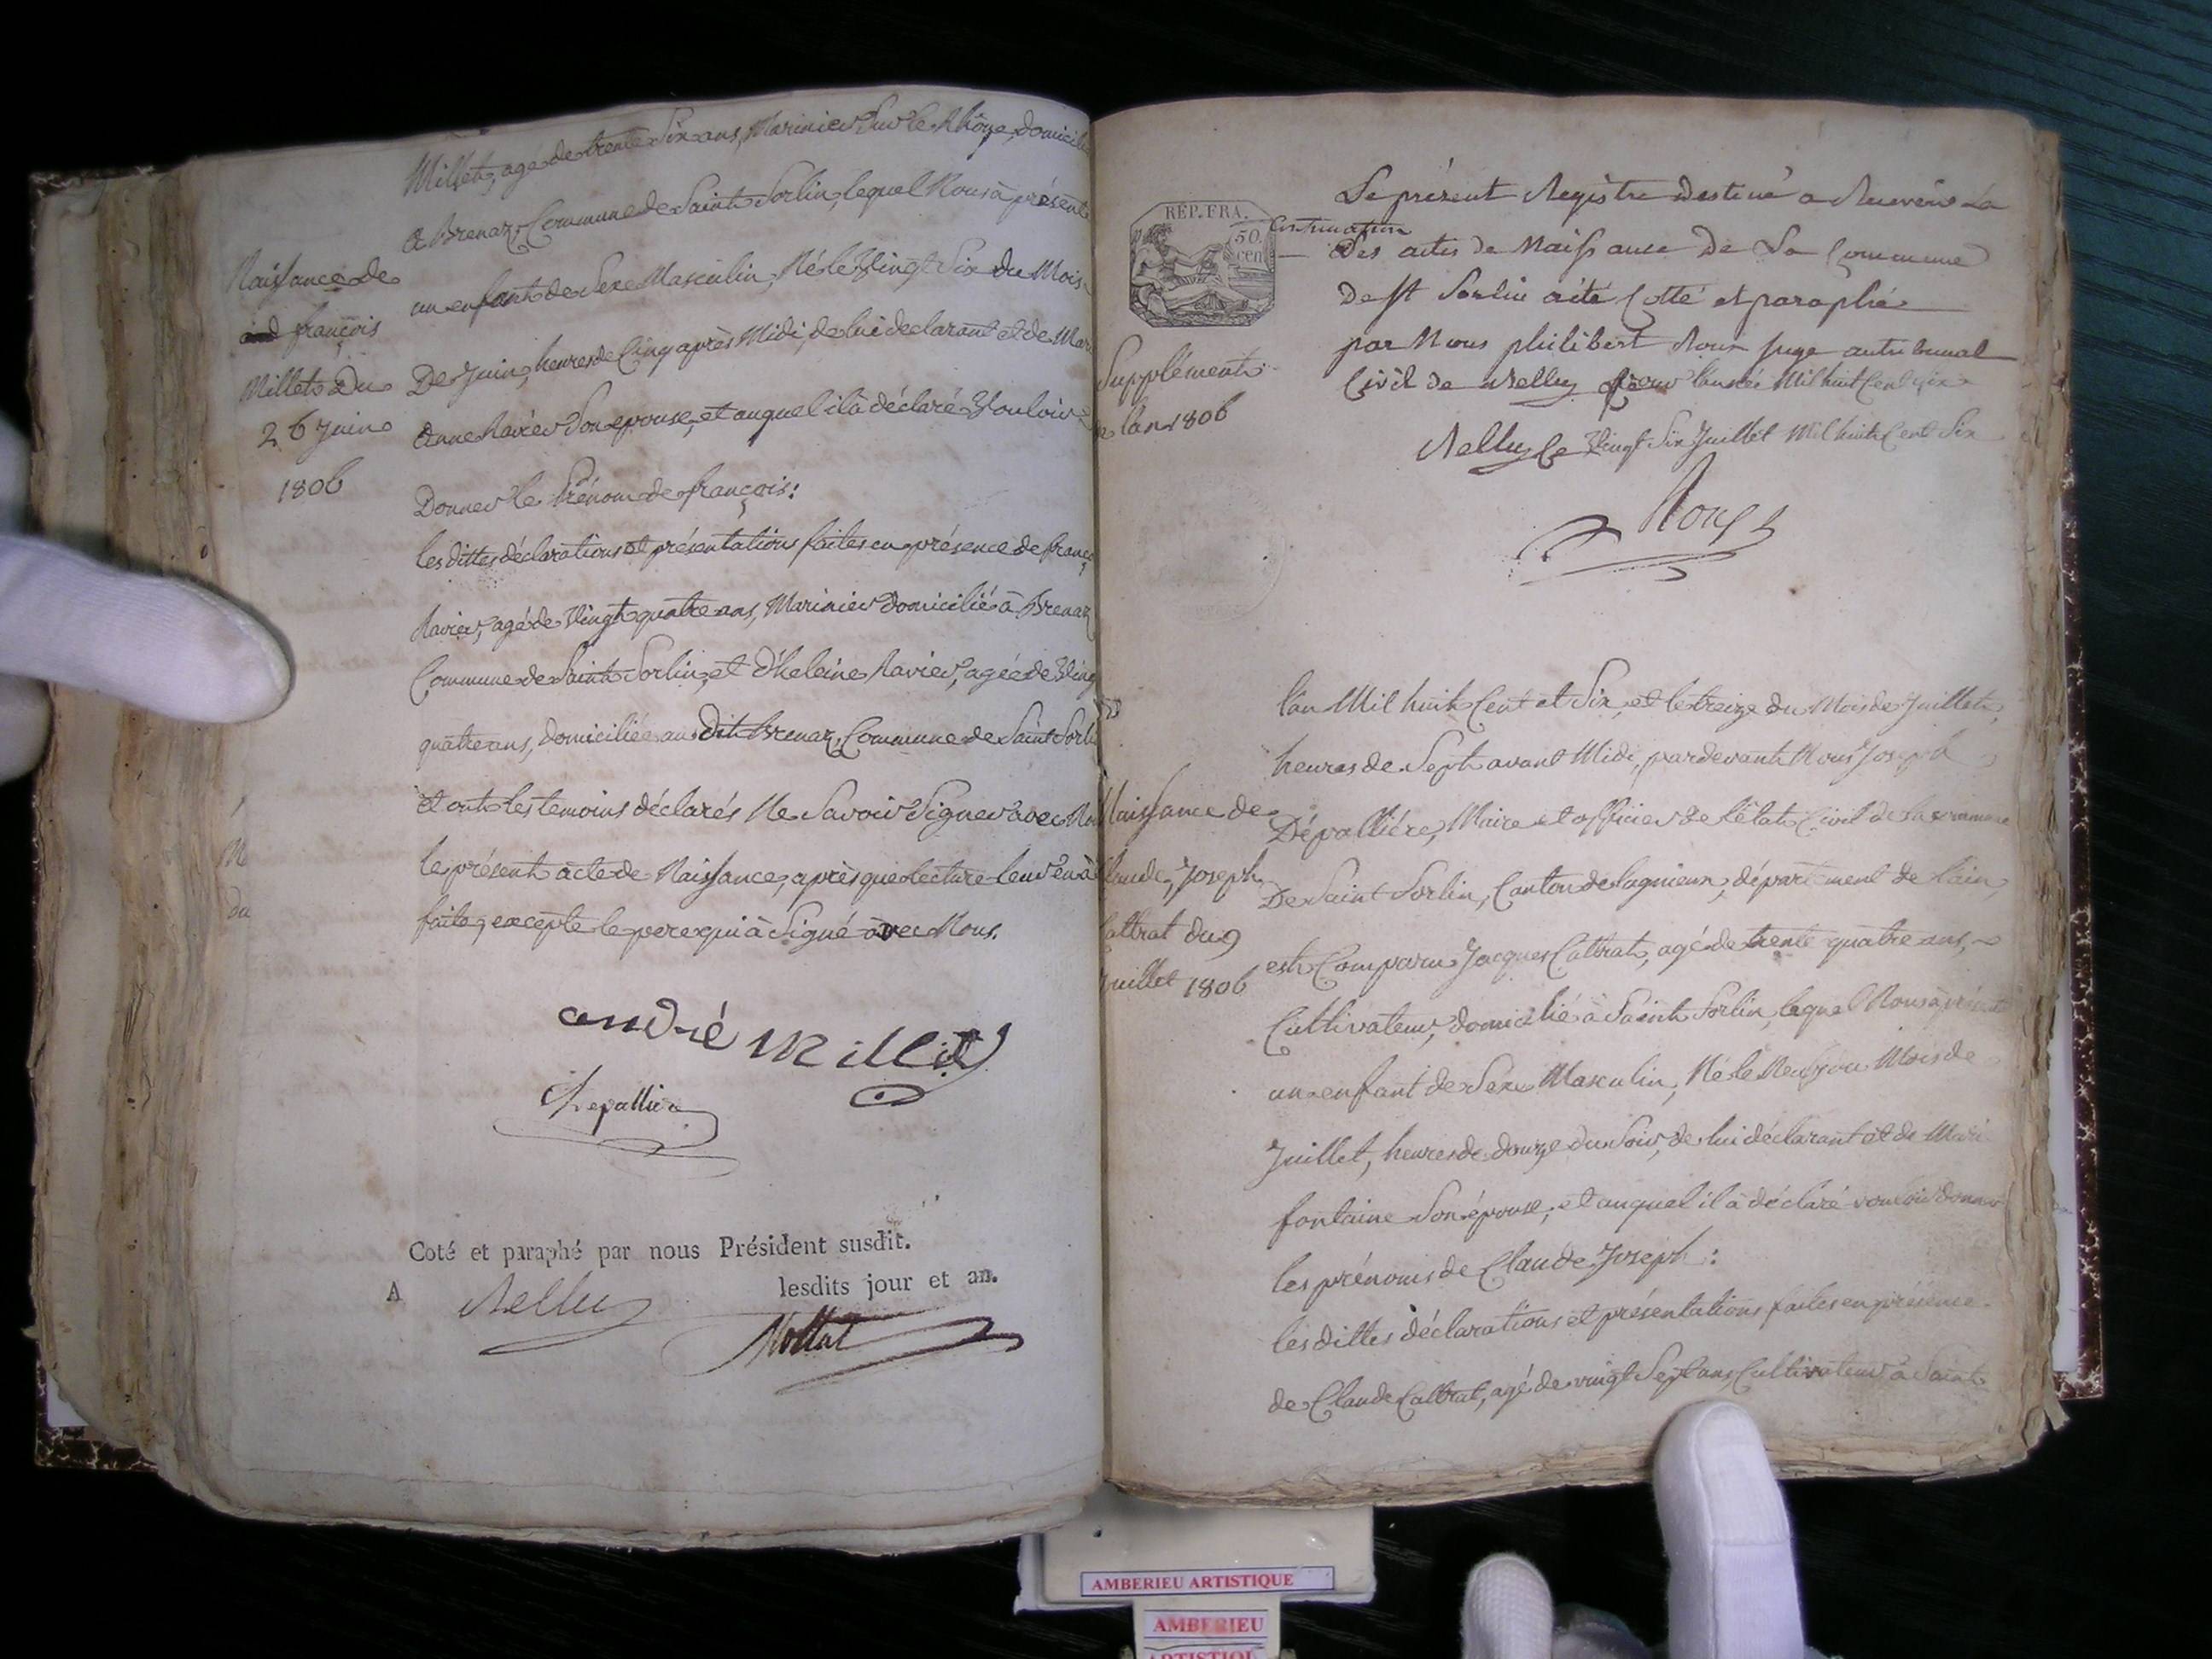 Millet, agé de trente Six ans, Marinier Sur le Rhône, domicilié
à Brenaz, Commune de Saint Sorlin, lequel Nous à présenté
un enfant de Sexe Masculin, Né le Vingt Six du Mois
De Juin, heures de Cinq après Midi, de lui déclarant et de Mari
Anne Ravier Son epouse, et auquel il à déclaré Vouloir
Donner le Prénom de françois:
les dittes déclarations et présentations faites en présence de franç
Ravier, agé de Vingt quatre ans, Marinier domicilié à Brenaz
Commune de Saint Sorlin, et d'heleine Ravier, agée de Ving
quatre ans, domiciliée au Dit Brenaz, Commune de Saint Sorli
et ont les temoins déclarés Ne Savoir Signer avec No
le présent acte de Naissance, après que lecture leur en à
faite, excepté le pere qui à Signé avec Nous.
Naissance de
françois
Millet Du
26 Juin
1806
andré Millet
Depallière
Coté et paraphé par nous Président susdit.
A Belley lesdits jour et an.
RÉP. FRA.
50 cen
Le présent Registre Destiné a Recevoir La
Continuation
Des actes de Naissance De La Commune
De St Sorlin a été Cotté et paraphé
par Nous philibert Roux juge au tribunal
Civil de Belley pour l'année Mil huit Cent Six
Belley Ce Vingt Six Juillet Mil huit Cent Six
Roux
Supplément
lan 1806
Naissance de
Claude, Joseph
Cattrat du 9
Juillet 1806
l'an Mil huit Cent et Six, et le treize du Mois de Juillet,
heures de Sept avant Midi, pardevant Nous Joseph
Dépallière, Maire et officier de l'état Civil de la Commune
De Saint Sorlin, Canton de lagnieux, département de l'ain
est Comparu Jacques Cattrat, agé de trente quatre ans,
Cultivateur, domicilié à Saint Sorlin, lequel Nous à présenté
un enfant de Sexe Masculin, Né le Neuf du Mois de
Juillet, heures de douze du Soir, de lui déclarant et de Mari
fontaine Son épouse, et auquel il à déclaré vouloir donner
les prénoms de Claude Joseph:
les dittes déclarations et présentations faites en présence
de Claude Cattrat, agé de vingt Sept ans, Cultivateur à Saint
AMBERIEU ARTISTIQUE
AMBERIEU
ARTISTIQUE